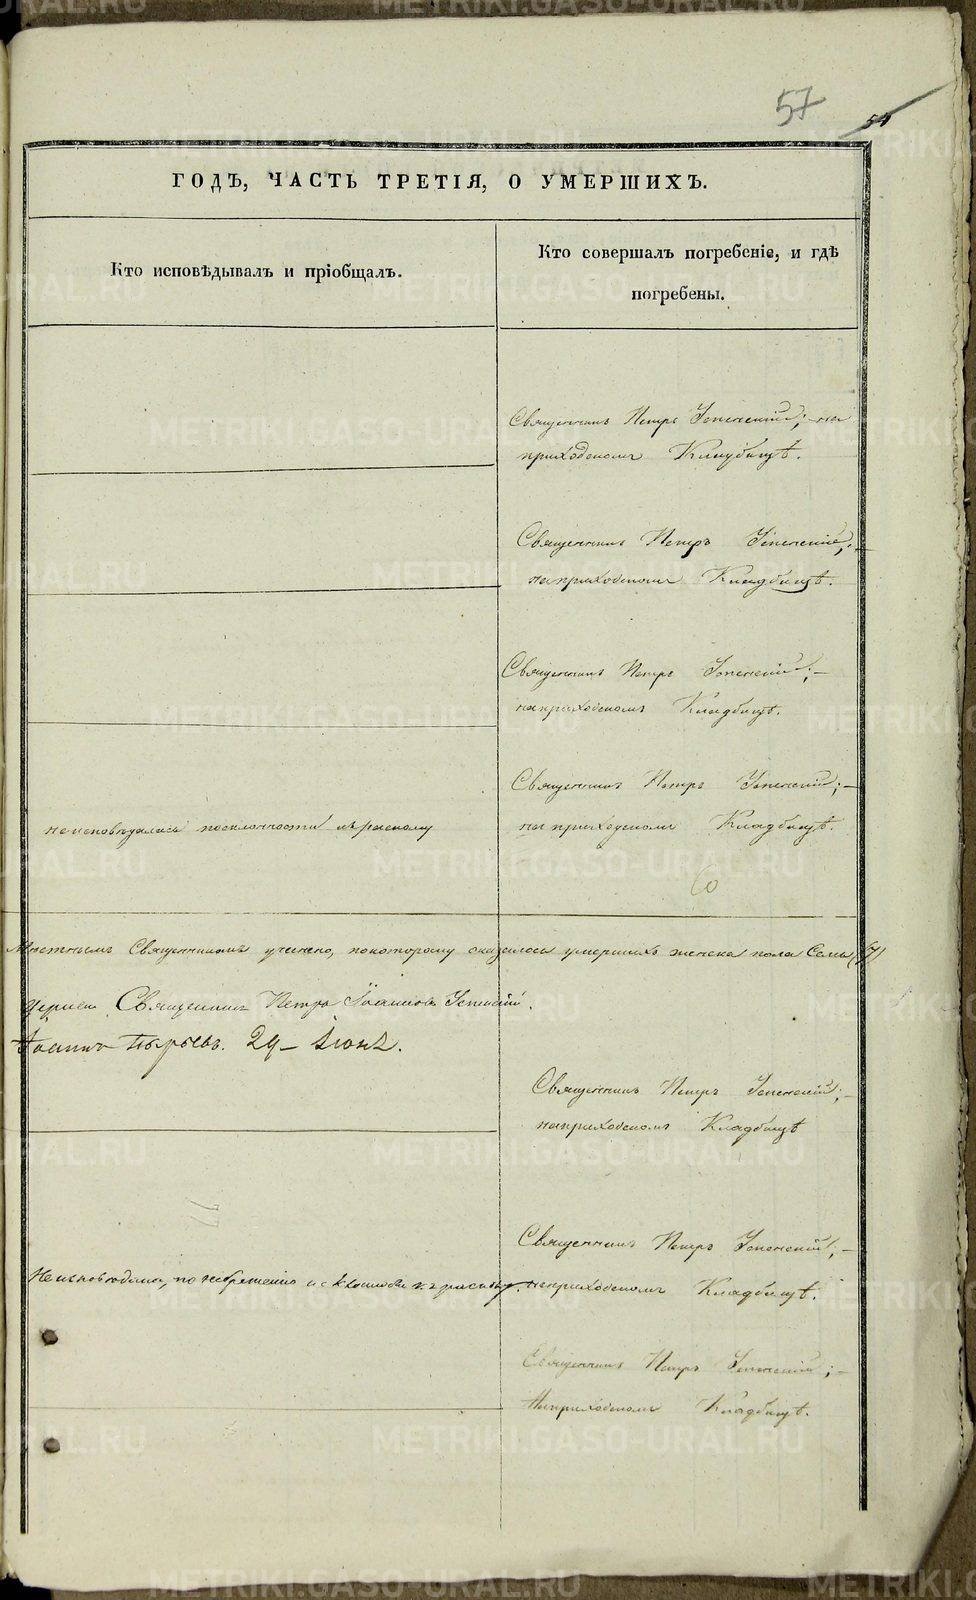 57
ГОДЪ, ЧАСТЬ ТРЕТІЯ, О УМЕРШИХЪ.
Кто исповѣдывалъ и пріобщалъ.
Кто совершалъ погребеніе, и гдѣ
погребены.
Священникъ Петръ Успенскій; на
приходскомъ Кладбищѣ.
Священникъ Петръ Успенскій;
на приходскомъ Кладбищѣ.
Священникъ Петръ Успенскій; —
на приходскомъ Кладбищѣ.
Священникъ Петръ Успенскій; —
неисповѣдалась посклонности къ расколу
на приходскомъ Кладбищѣ.
Священникомъ учинено, покоторому оказалось умершихъ женска пола Семь (7)
Священникъ Петръ Іоанновъ Успенскій.
Іоаннъ Пырьевъ. 29 — Іюня.
Священникъ Петръ Успенскій; —
на приходскомъ Кладбищѣ
Священникъ Петръ Успенскій; —
Не исповѣдана, по небреженію и склонности къ расколу.
на приходскомъ Кладбищѣ.
Священникъ Петръ Успенскій; —
на приходскомъ Кладбищѣ.
METRIKI.GASO-URAL.RU